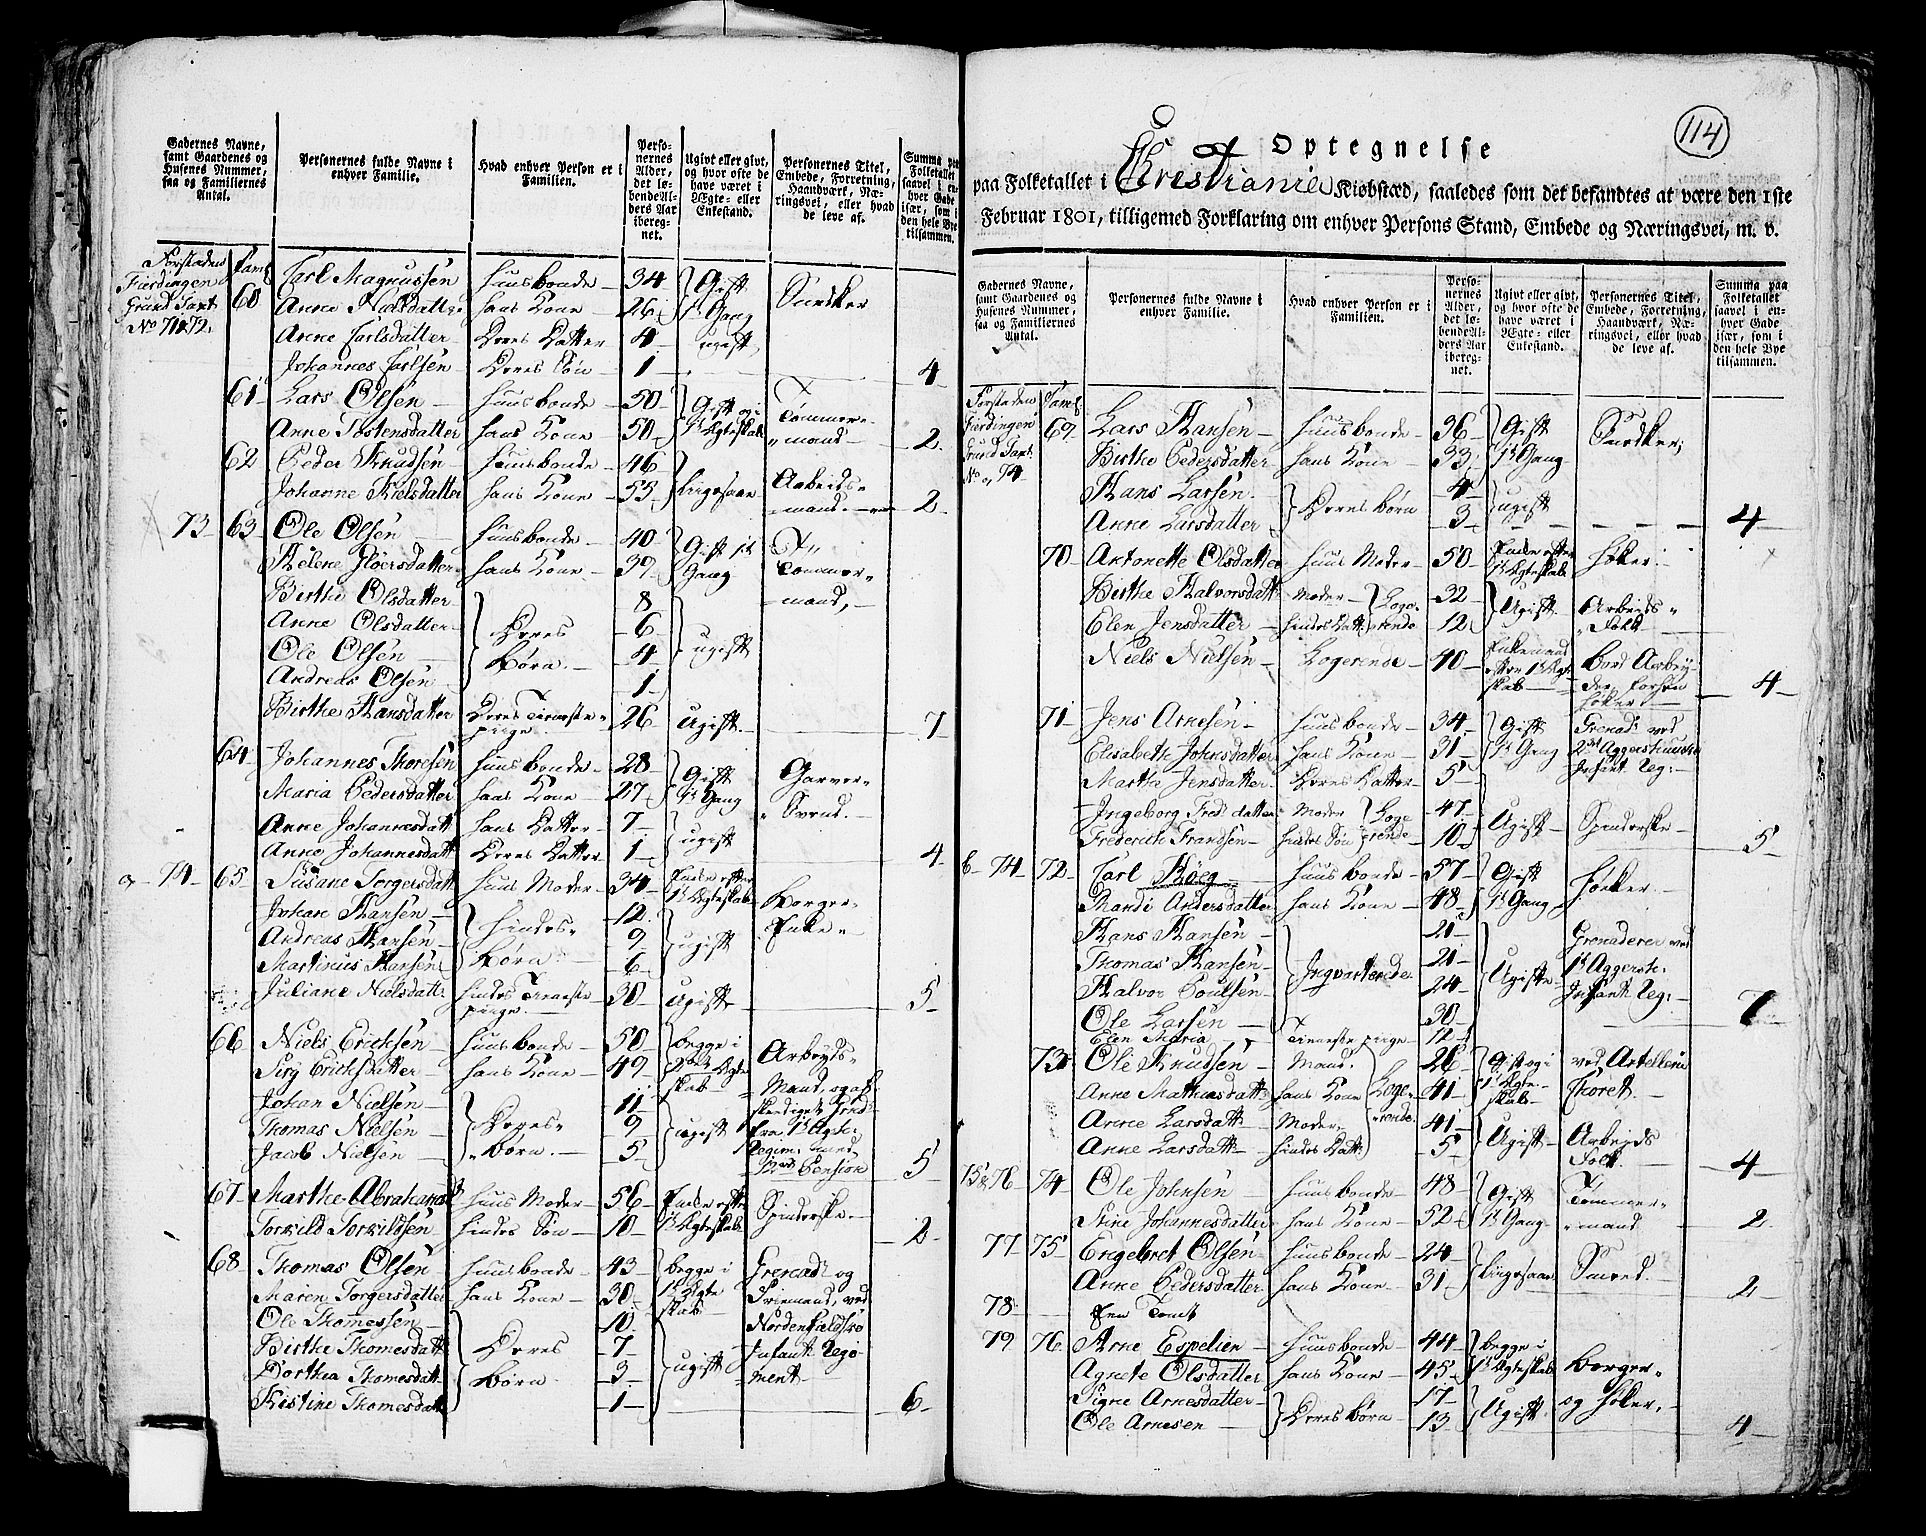 Gadernes Navne, samt Gaardenes og Husenes Nummer, saa og Familiernes Antal.
Personernes fulde Navne i enhver Familie.
Hvad enhver Person er i Familien.
Personernes Alder, det løbende Alders Aar iberegnet.
Ugivt eller givt, og hvor ofte de have været i Ægte- eller Enkestand.
Personernes Titel, Embede, Forretning, Haandværk, Næringsvei, eller hvad de leve af.
Summa paa Folketallet saavel i enhver Gade især, som i den hele Bye tilsammen.
Forstaden Faml
Fierdingen
Grund Taxt
No 71 & 72.
60 Carl Magnussen Huusbonde 34 Gift Snedker
Anne Nielsdatter hans Kone 26 1te Gang
Anne Carlsdatter Deres Datter 4 ugift
Johannes Carlsen Deres Søn 1 4
61 Lars Olsen Huusbonde 50 Gift og i Tømmer-
Anne Tostensdatter hans Kone 50 1te Ægteskab mand 2
62 Peder Knudsen Huusbonde 46 Ligesaa Arbeids-
Johanne Nielsdatter hans Kone 55 mand 2
73 63 Ole Olsen Huusbonde 40 Gift 1te Tømmer-
Helene Iversdatter hans Kone 39 Gang mand
Birthe Olsdatter Deres Børn 8 ugift
Anne Olsdatter 6
Ole Olsen 4
Andreas Olsen 1
Birthe Hansdatter Deres Tienestepige 26 Ugift 7
64 Johannes Thoresen Huusbonde 28 Gift Garver-
Maria Pedersdatter hans Kone 27 1te Gang Svend
Anne Johannesdatt hans Datter 7 ugift
Anne Johannesdatt Deres Datter 1 4
a 74 65 Susane Torgersdatt Huus Moder 34 Enke efter 1te Ægteskab Borger-Enke
Johan Hansen hindes Børn 12 ugift
Andreas Hansen 9
Martinus Hansen 6
Juliane Nielsdatt: hindes Tienestepige 30 Ugift 5
66 Niels Ericksen Huusbonde 50 begge i Arbeyds-
Siry Ericksdatter hans Kone 49 2det Ægteskab Mand, og
Johan Nielsen Deres Børn 11 ugift
Thomas Nielsen 9
Jacob Nielsen 5 Pension 5
67 Marthe Abrahamsd Huus Moder 56 Enke efter Spinderske
Torkild Torkildsen hindes Søn 10 1te Ægteskab 2
68 Thomas Olsen Huusbonde 43 begge i Grenad: og
Maren Torgersdatter hans Kone 30 1te Ægteskab Friemand, ved
Ole Thomessen Deres Børn 10 ugift Nordenfieldske
Birthe Thomesdatt 7 Infant: Regi-
Dorthea Thomesdatt 3 ment
Kistine Thomesdatt 1 6
114
Optegnelse
paa Folketallet i Christiania Kiøbstæd, saaledes som det befandtes at være den 1ste
Februar 1801, tilligemed Forklaring om enhver Persons Stand, Embede og Næringsvei, m. v.
Gadernes Navne, samt Gaardenes og Husenes Nummer, saa og Familiernes Antal.
Personernes fulde Navne i enhver Familie.
Hvad enhver Person er i Familien.
Personernes Alder, det løbende Alders Aar iberegnet.
Ugivt eller givt, og hvor ofte de have været i Ægte- eller Enkestand.
Personernes Titel, Embede, Forretning, Haandværk, Næringsvei, eller hvad de leve af.
Summa paa Folketallet saavel i enhver Gade især, som i den hele Bye tilsammen.
Forstaden Faml
Fierdingen
Grund Taxt
No a 74
69 Lars Hansen Huusbonde 36 Gift Snedker
Birthe Pedersdatter hans Kone 33 1te Gang
Hans Larsen Deres Børn 4 ugift
Anne Larsdatter 3 4
70 Antonette Olsdatter Huus Moder 50 Enke efter 1te Ægteskab Høker
Birthe Halvorsdatt Moder Logerende 32 Ugift Arbeids-
Elen Jensdatter hindes Datt 12 Folk
Niels Nielsen Logerende 40 Enkemand efter 1te Ægteskab Bord Arbey- Høker 4
71 Jens Arnesen Huusbonde 34 Gift Grenad: ved
Elisabeth Johnsdatter hans Kone 31 1te Gang 2det Aggershuuske
Martha Jensdatter Deres Datter 5 Infant: Reg:
Ingeborg Fredsdatter Moder Logerende 47 Ugift Spinderske
Frederich Frandsen hindes Søn 10 5
b 74 72 Carl Høeg Huusbonde 57 Gift Høker
Randi Andersdatter hans Kone 48 1te Gang
Hans Hansen Inqvarterede 21 Ugift Grenaderer ved
Thomas Hansen 21 1te Aggersh:
Halvor Poulsen 24 Infant: Reg:
Ole Larsen 30 7
Elen Maria Tieneste pige 12
73 Ole Knudsen Mand Logerende 26 Gift og i ved Artelleri
Anne Mathiesdatt hans Kone 41 1te Ægteskab Choret
Anne Larsdatt Moder 41 Ugift Arbeids
Anne Larsdatt hindes Datt 5 Folk 4
75 & 76 74 Ole Johnsen Huusbonde 48 Gift Tømmer-
Stine Johannesdatter hans Kone 52 1te Gang mand 2
77 75 Engebret Olsen Huusbonde 24 Ligesaa Smed
Anne Pedersdatter hans Kone 31 2
78 Een Tomt
79 76 Arne Espelien Huusbonde 44 begge i Borger
Agnete Olsdatter hans Kone 45 1te Ægteskab og Høker
Signe Arnesdatter Deres Børn 17 Ugift
Ole Arnesen 13 4